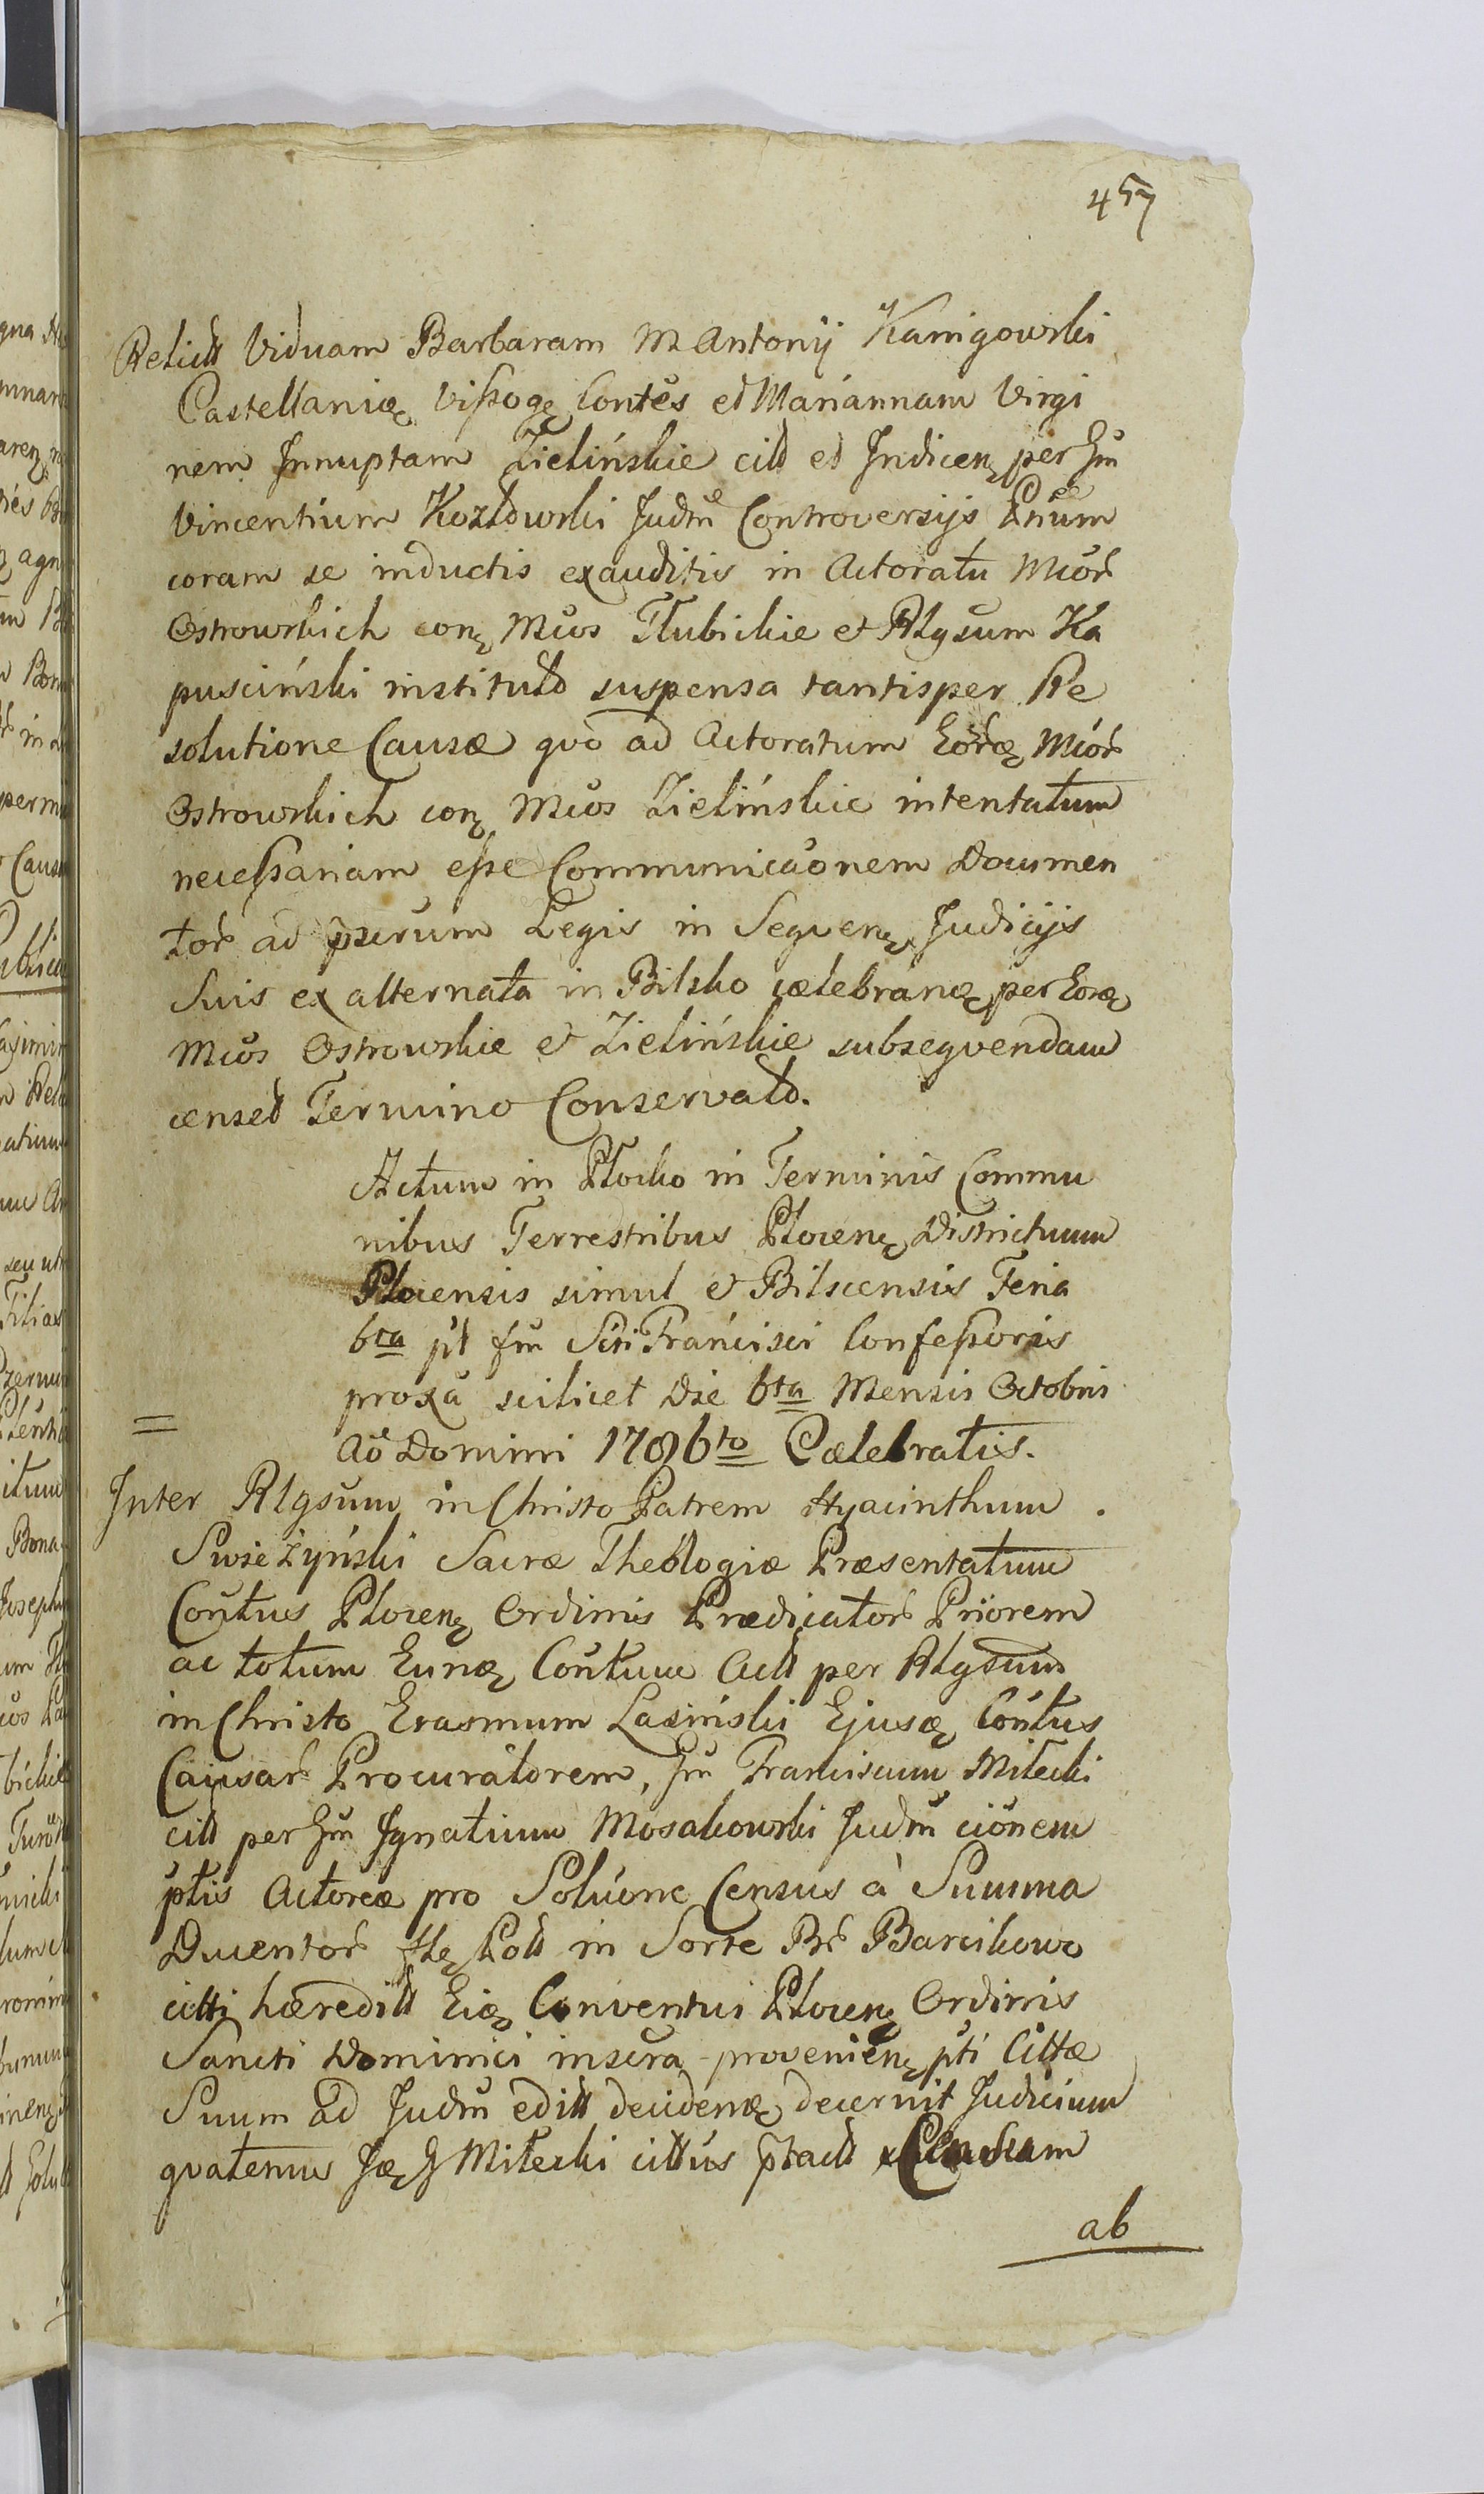 457
Relictt Viduam Barbaram M Antonij Kanigowski
Castellaniæ Vissogę Contes et Mariannam Virgi
nem Innuptam Zielińskie citt et Indicenę per Gm
Vincentium Kozłowski Judm Controversijs Ptium
coram se inductis exauditis in Actoratu Mcor
Ostrowskich conę Mcos Tłubickie et Rlgsum Ka
pusciński institutt suspensa tantisper Re
solutione Causæ qvo ad Actoratum Eorдę Mcor
Ostrowskich conę Mcos Zielińskie intentatum
necessariam esse Communicaonem Documen
tor ad pscrum Legis in Seqvenę Judicijs
Suis ex alternata in Bilsko cœlebranę per Eosę
Mcos Ostrowskie et Zielińskie subseqvendam
censet Termino Conservatt.
Actum in Płocko in Terminis Commu
nibus Terrestribus Płocenę Districtuum
Plocensis simul et Bilscensis Feria
6ta pt fm Scti Francisci Confessoris
proxa scilicet Die 6ta Mensis Octobris
=
Ao Domini 1786to Cœlebratis.
Inter Rlgsum in Christo Patrem Hyacinthum
Swieżyński Sacræ Theologiæ Præsentatum
Contus Plocenę Ordinis Prædicator Priorem
ac totum Eunę Contum Actt per Rlgsum
in Christo Erasmum Lasiński Ejusę Contus
Causar Procuratorem, Gm Franciscum Miłecki
citt per Gm Ignatium Mosakowski Judm cionem
ptis Actoreæ pro Soluone Census à Summa
Ducentor flę Poll in Sorte Br Barcikowo
citti hæreditt Eię Conventui Plocenę Ordinis
Sancti Dominici inscra provenienę pti Cittæ
Suum ad Judm editt decidenę decernit Judicium
qvatenus Ię G Miłecki cittus ptactt Censum
ab